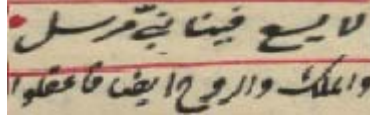 لا يسع فينا نبيّ مرسل
والملك والروح ايضا فاعقلوا